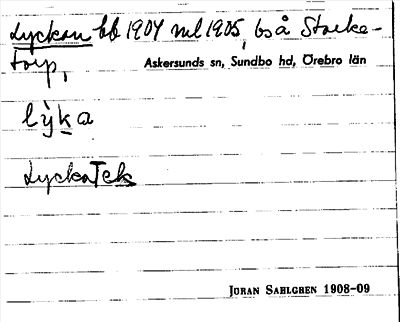 Lyckan bb 1904 ml 1905, bs å Storke-
torp,
Askersunds sn, Sundbo hd, Örebro län
lỳka
Lycka Tek
JORAN SAHLGREN 1908-09